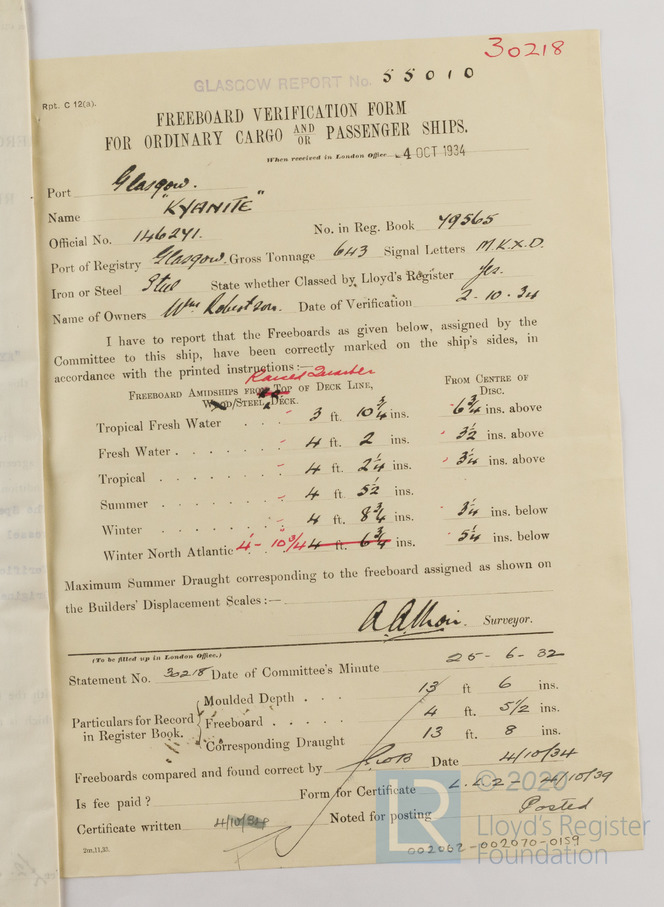 30218
GLASGOW REPORT No. 55010
Rpt. C 12(a).
FREEBOARD VERIFICATION FORM
FOR ORDINARY CARGO AND/OR PASSENGER SHIPS.
When received in London Office 4 OCT 1934
Port Glasgow.
Name "KYANITE"
Official No. 146271. No. in Reg. Book 49565
Port of Registry Glasgow. Gross Tonnage 643 Signal Letters M.K.X.D.
Iron or Steel Steel State whether Classed by Lloyd's Register Yes.
Name of Owners Wm Robertson. Date of Verification 2-10-34
I have to report that the Freeboards as given below, assigned by the
Committee to this ship, have been correctly marked on the ship's sides, in
accordance with the printed instructions:—
Raised Quarter
FREEBOARD AMIDSHIPS FROM TOP OF DECK LINE, FROM CENTRE OF
WOOD/STEEL DECK. DISC.
Tropical Fresh Water 3 ft. 10 3/4 ins. 6 3/4 ins. above
Fresh Water 4 ft. 2 ins. 3 1/2 ins. above
Tropical 4 ft. 2 1/4 ins. 3 1/4 ins. above
Summer 4 ft. 5 1/2 ins.
Winter 4 ft. 8 3/4 ins. 3 1/4 ins. below
Winter North Atlantic 4'-10 3/4" 4 ft. 6 3/4 ins. 5 1/4 ins. below
Maximum Summer Draught corresponding to the freeboard assigned as shown on
the Builders' Displacement Scales:—
Surveyor.
(To be filled up in London Office.)
Statement No. 30218 Date of Committee's Minute 25-6-32
Particulars for Record in Register Book.
Moulded Depth 13 ft 6 ins.
Freeboard 4 ft. 5 1/2 ins.
Corresponding Draught 13 ft. 8 ins.
Freeboards compared and found correct by Date 4/10/34
Is fee paid? Form for Certificate L.L.2 - 4/10/39
Certificate written 4/10/34 Noted for posting Posted
2m,11,33.
© 2020
LR
Lloyd's Register
Foundation
002062-002070-0159